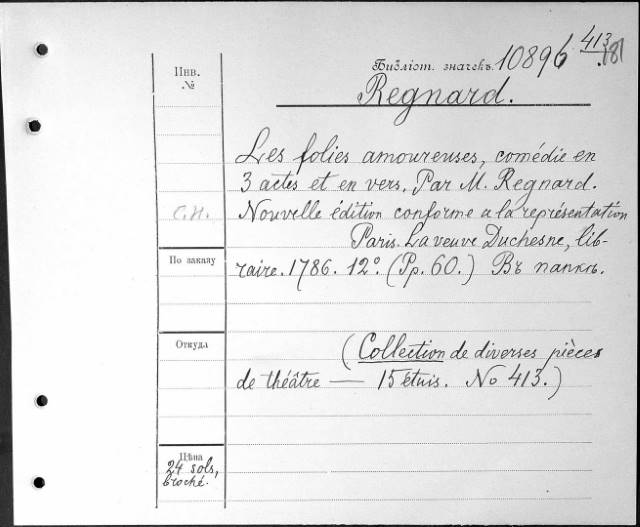 Библіот. значекъ. 10896 413/.181
Инв.
№
Regnard.
Les folies amoureuses, comédie en
3 actes et en vers. Par M. Regnard.
С.И. Nouvelle édition conforme a la représentation
Paris. La veuve Duchesne, lib-
По заказу
raire. 1786. 12º. (Pp. 60.) Въ папкѣ.
Откуда
(Collection de diverses pièces
de théâtre — 15 étuis. No 413.)
Цѣна
24 sols,
broché.